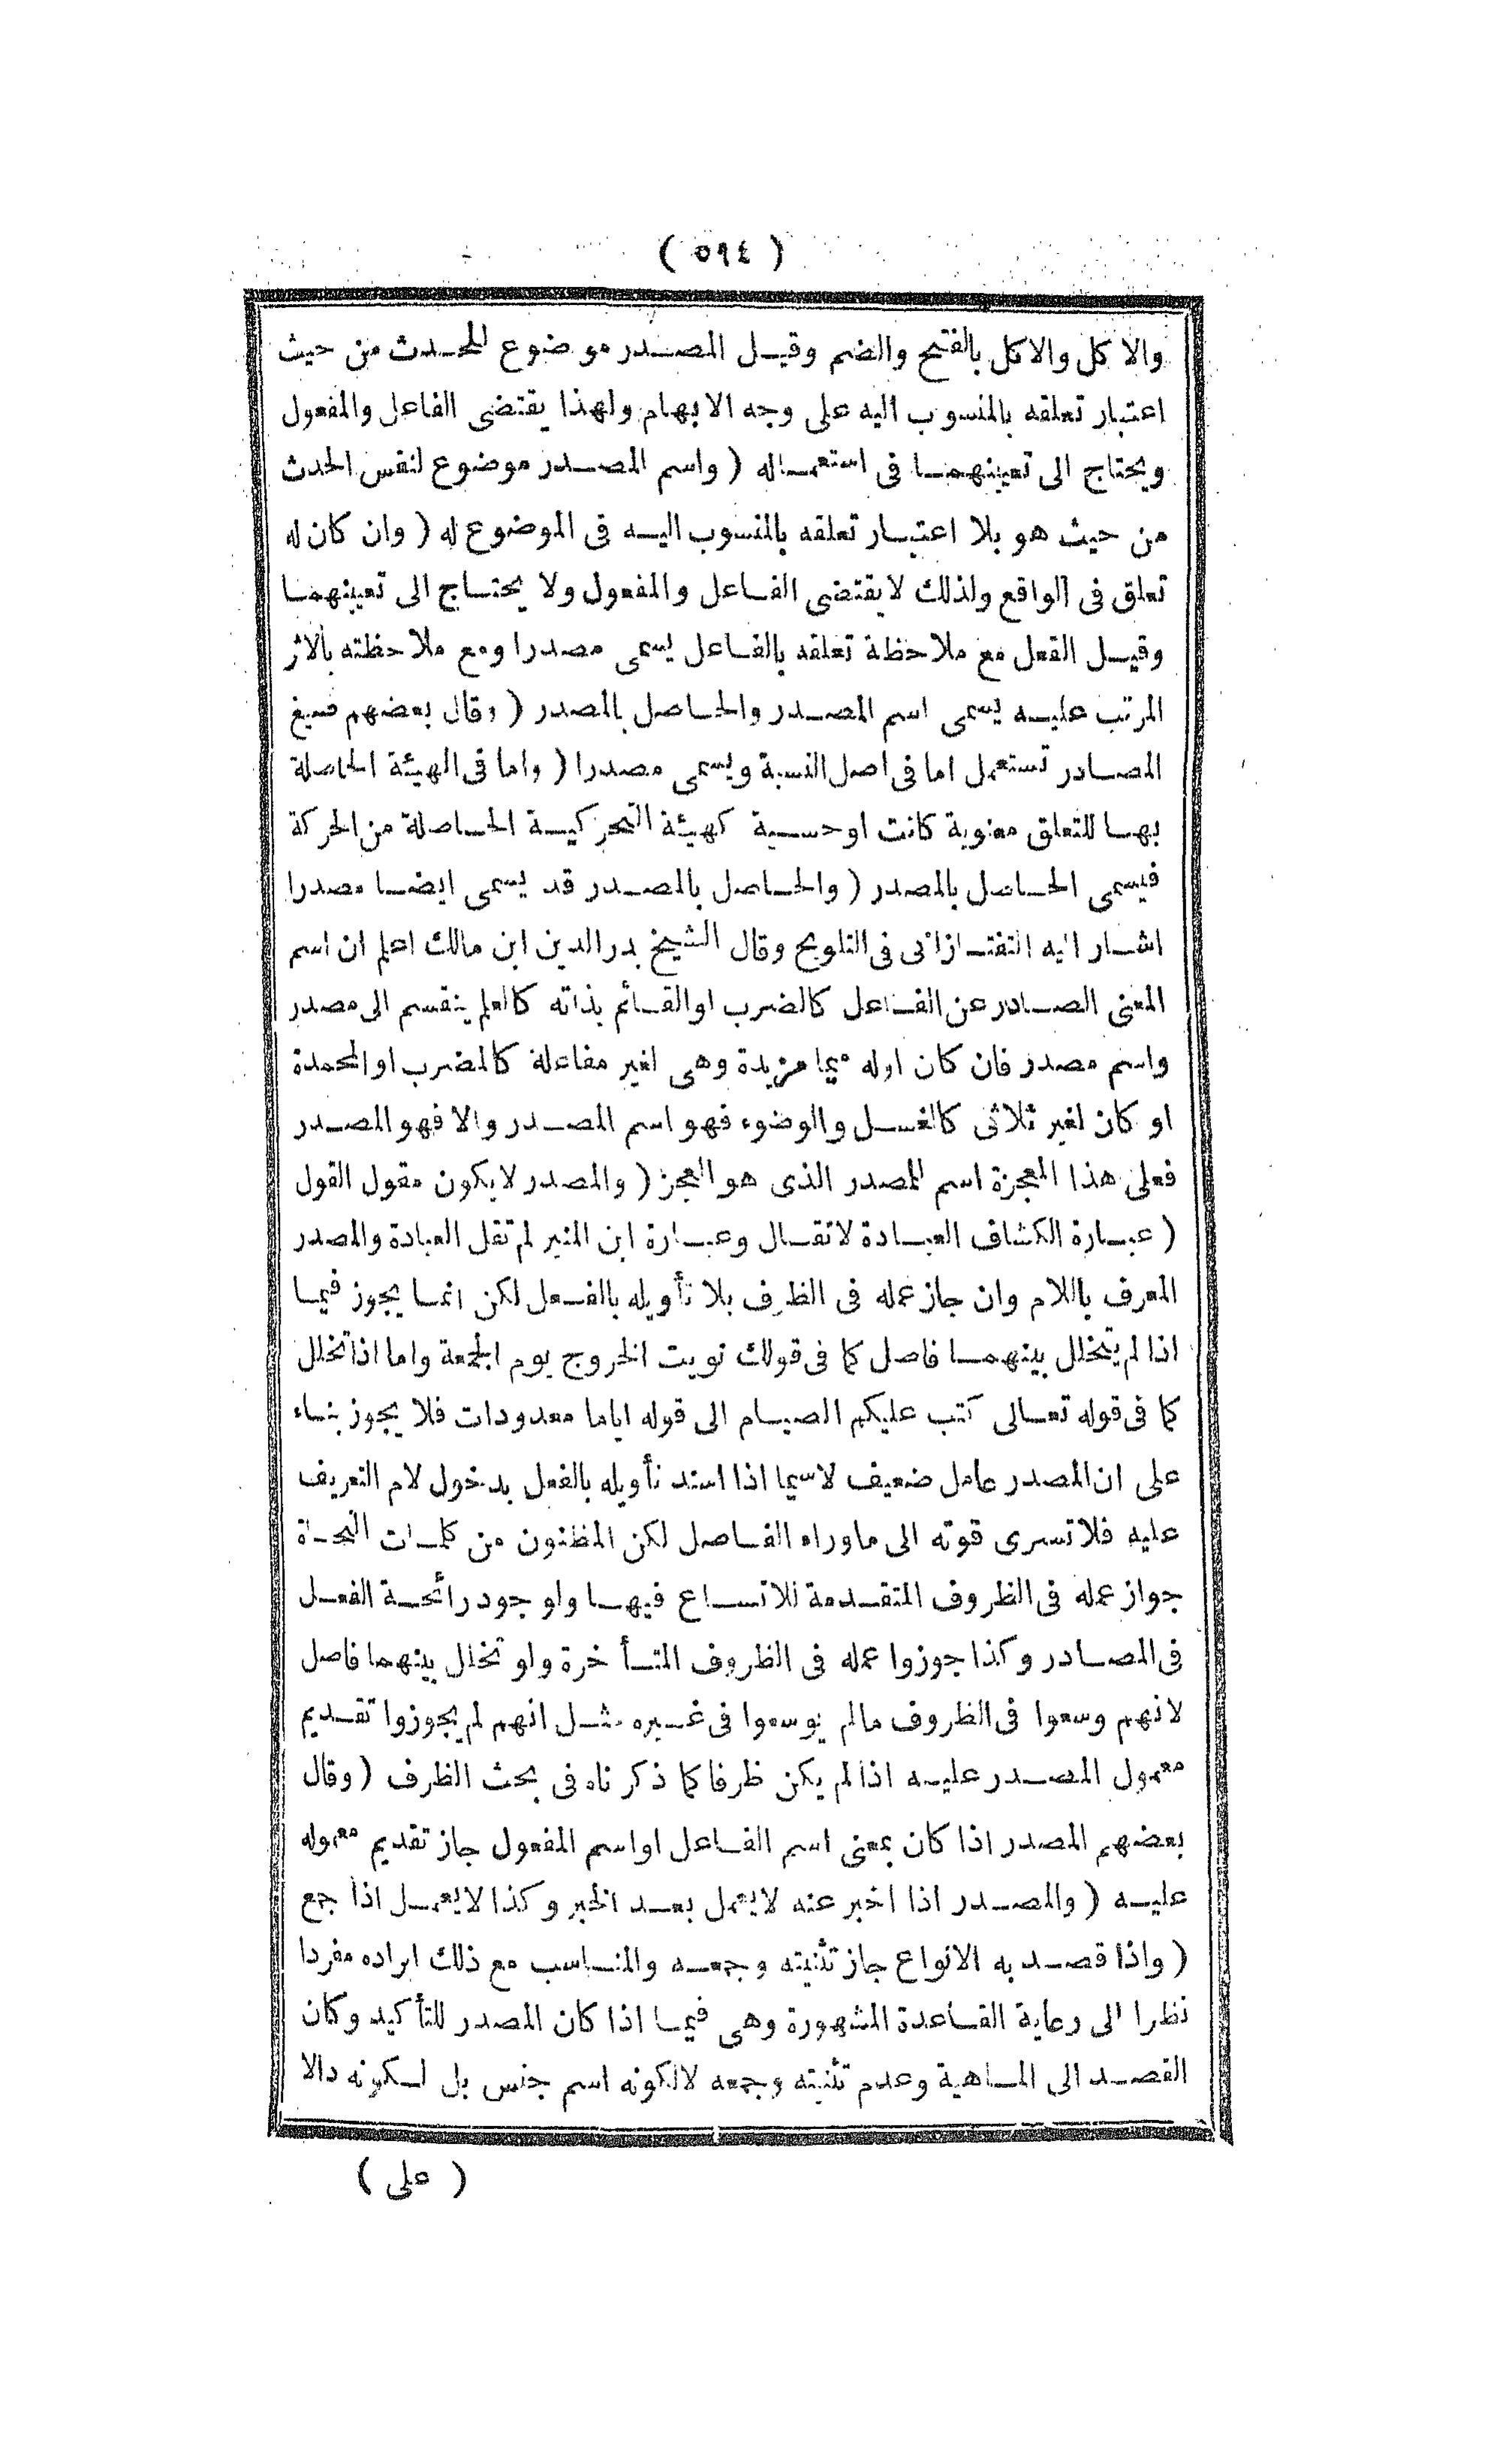 ( ٥٩٤ )
والاكل والاكل بالفتح والضم وقيل المصدر موضوع للحدث من حيث
اعتبار تعلقه بالمنسوب اليه على وجه الابهام ولهذا يقتضى الفاعل والمفعول
ويحتاج الى تعيينهما فى استعماله ( واسم المصدر موضوع لنفس الحدث
من حيث هو بلا اعتبار تعلقه بالمنسوب اليه فى الموضوع له ( وان كان له
تعلق فى الواقع ولذلك لا يقتضى الفاعل والمفعول ولا يحتاج الى تعيينهما
وقيل الفعل مع ملاحظة تعلقه بالفاعل يسمى مصدرا ومع ملاحظته بالاثر
المرتب عليه يسمى اسم المصدر والحاصل بالمصدر ( وقال بعضهم صيغ
المصادر تستعمل اما فى اصل النسبة ويسمى مصدرا ( واما فى الهيئة الحاصلة
بها للتعلق معنوية كانت او حسية كهيئة التحركية الحاصلة من الحركة
فيسمى الحاصل بالمصدر ( والحاصل بالمصدر قد يسمى ايضا مصدرا
اشار اليه التفتازانى فى التلويح وقال الشيخ بدرالدين ابن مالك اعلم ان اسم
المعنى الصادر عن الفاعل كالضرب او القائم بذاته كالعلم ينقسم الى مصدر
واسم مصدر فان كان اوله ميما مزيدة وهى لغير مفاعلة كالمضرب او المحمدة
او كان لغير ثلاثى كالغسل والوضوء فهو اسم المصدر والا فهو المصدر
فعلى هذا المعجزة اسم للمصدر الذى هو العجز ( والمصدر لا يكون مقول القول
( عبارة الكشاف العبادة لا تقال وعبارة ابن المنير لم تقل العبادة والمصدر
المعرف باللام وان جاز عمله فى الظرف بلا تأويله بالفعل لكن انما يجوز فيما
اذا لم يتخلل بينهما فاصل كما فى قولك نويت الخروج يوم الجمعة واما اذا تخلل
كما فى قوله تعالى كتب عليكم الصيام الى قوله اياما معدودات فلا يجوز بناء
على ان المصدر عامل ضعيف لاسيما اذا اسند تأويله بالفعل بدخول لام التعريف
عليه فلا تسرى قوته الى ماوراء الفاصل لكن المظنون من كلمات النحاة
جواز عمله فى الظروف المتقدمة للاتساع فيها ولوجود رائحة الفعل
فى المصادر وكذا جوزوا عمله فى الظروف المتأخرة ولو تخلل بينهما فاصل
لانهم وسعوا فى الظروف مالم يوسعوا فى غيره مثل انهم لم يجوزوا تقديم
معمول المصدر عليه اذا لم يكن ظرفا كما ذكرناه فى بحث الظرف ( وقال
بعضهم المصدر اذا كان بمعنى اسم الفاعل او اسم المفعول جاز تقديم معموله
عليه ( والمصدر اذا اخبر عنه لا يعمل بعد الخبر وكذا لا يعمل اذا جمع
( واذا قصد به الانواع جاز تثنيته وجمعه والمناسب مع ذلك ايراده مفردا
نظرا الى رعاية القاعدة المشهورة وهى فيما اذا كان المصدر للتأكيد وكان
القصد الى الماهية وعدم تثنيته وجمعه لا لكونه اسم جنس بل لكونه دالا
( على )